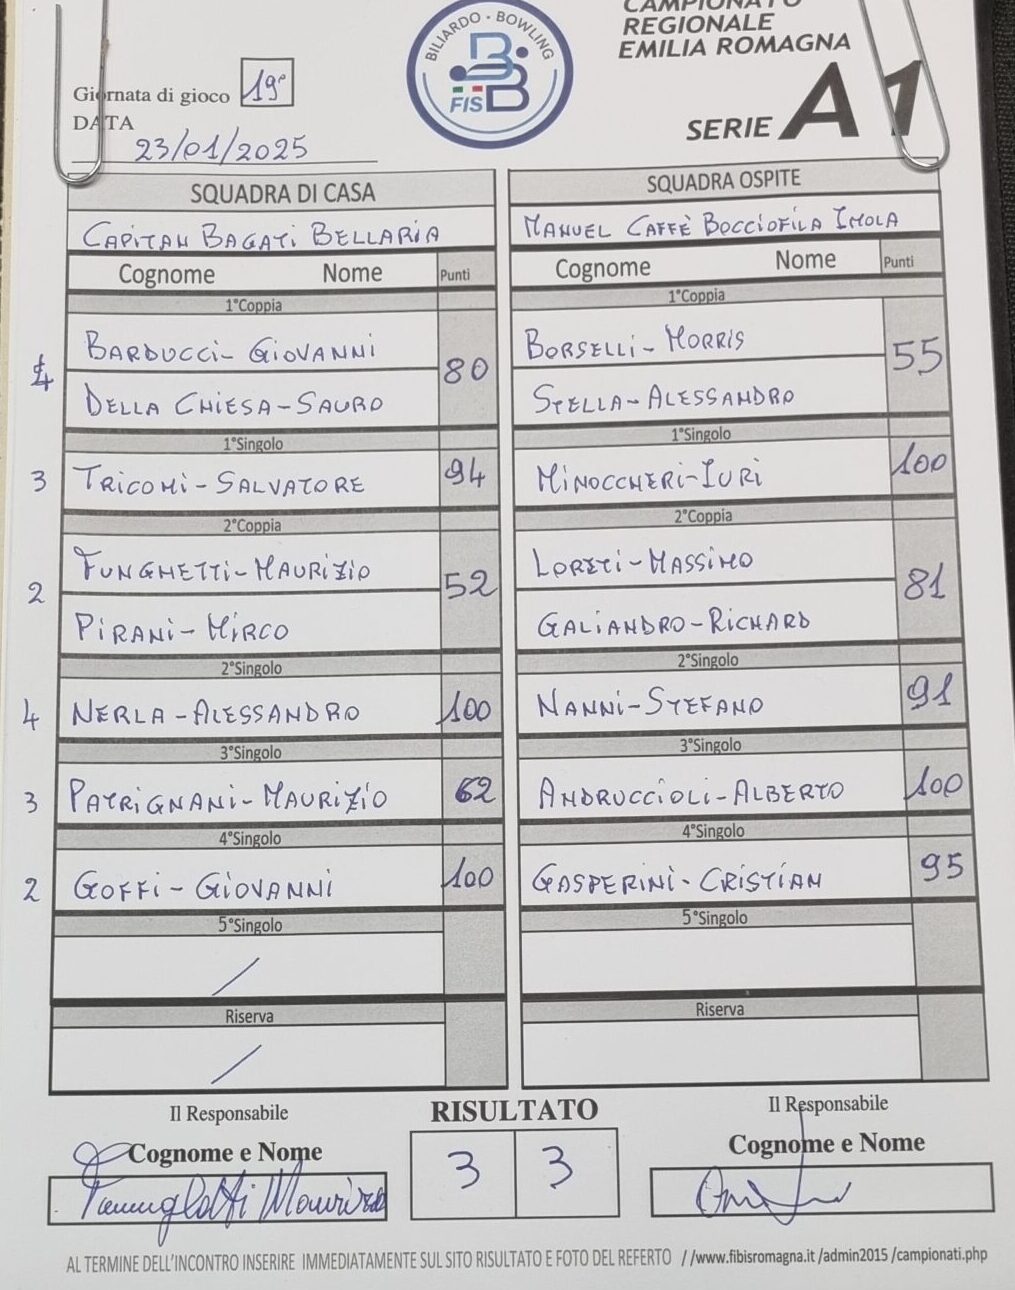 CAMPIONATO
REGIONALE
EMILIA ROMAGNA
SERIE A1
BILIARDO · BOWLING
FISBB
Giornata di gioco 19°
DATA
23/01/2025
SQUADRA DI CASA SQUADRA OSPITE
CAPITAN BAGATI BELLARIA MANUEL CAFFÈ BOCCIOFILA IMOLA
Cognome Nome Punti Cognome Nome Punti
1°Coppia 1°Coppia
BARDUCCI- GIOVANNI BORSELLI- MORRIS
4 80 55
DELLA CHIESA-SAURO STELLA-ALESSANDRO
1°Singolo 1°Singolo
3 TRICOMI-SALVATORE 94 MINOCCHERI-IURI 100
2°Coppia 2°Coppia
FUNGHETTI-MAURIZIO LORETI-MASSIMO
2 52 81
PIRANI-MIRCO GALIANDRO-RICHARD
2°Singolo 2°Singolo
4 NERLA-ALESSANDRO 100 NANNI-STEFANO 91
3°Singolo 3°Singolo
3 PATRIGNANI-MAURIZIO 62 ANDRUCCIOLI-ALBERTO 100
4°Singolo 4°Singolo
2 GOFFI-GIOVANNI 100 GASPERINI-CRISTIAN 95
5°Singolo 5°Singolo
/
Riserva Riserva
/
Il Responsabile RISULTATO Il Responsabile
Cognome e Nome Cognome e Nome
3 3
AL TERMINE DELL'INCONTRO INSERIRE IMMEDIATAMENTE SUL SITO RISULTATO E FOTO DEL REFERTO //www.fibisromagna.it/admin2015/campionati.php